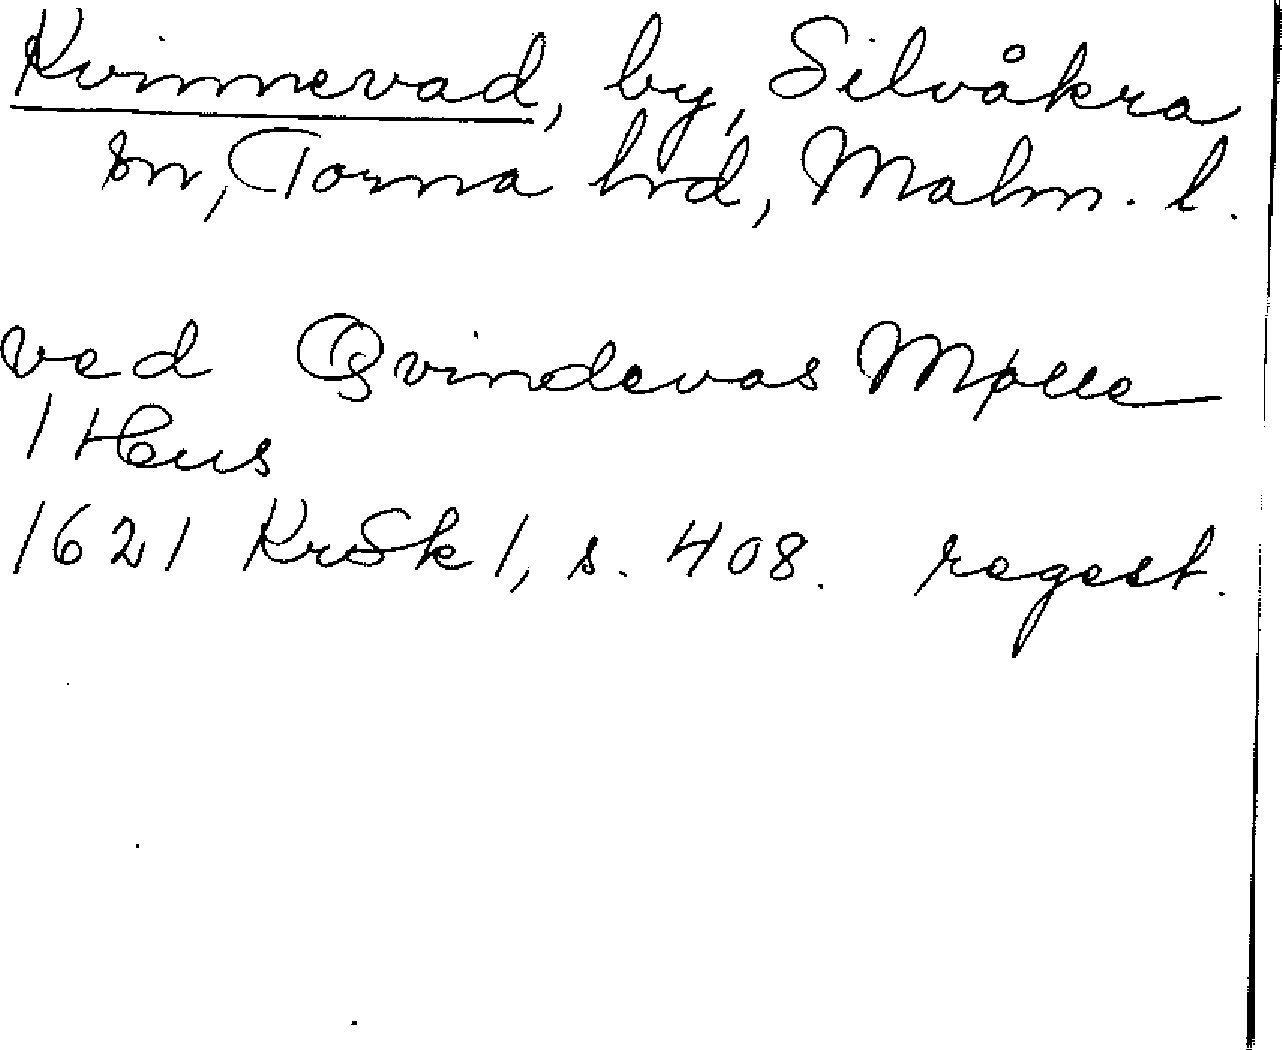 Kvinnevad, by, Silvåkra
sn, Torna hrd, Malm. l.
ved Qvindevas Mølle
1 Hus
1621 KrSk 1, s. 408. regest.